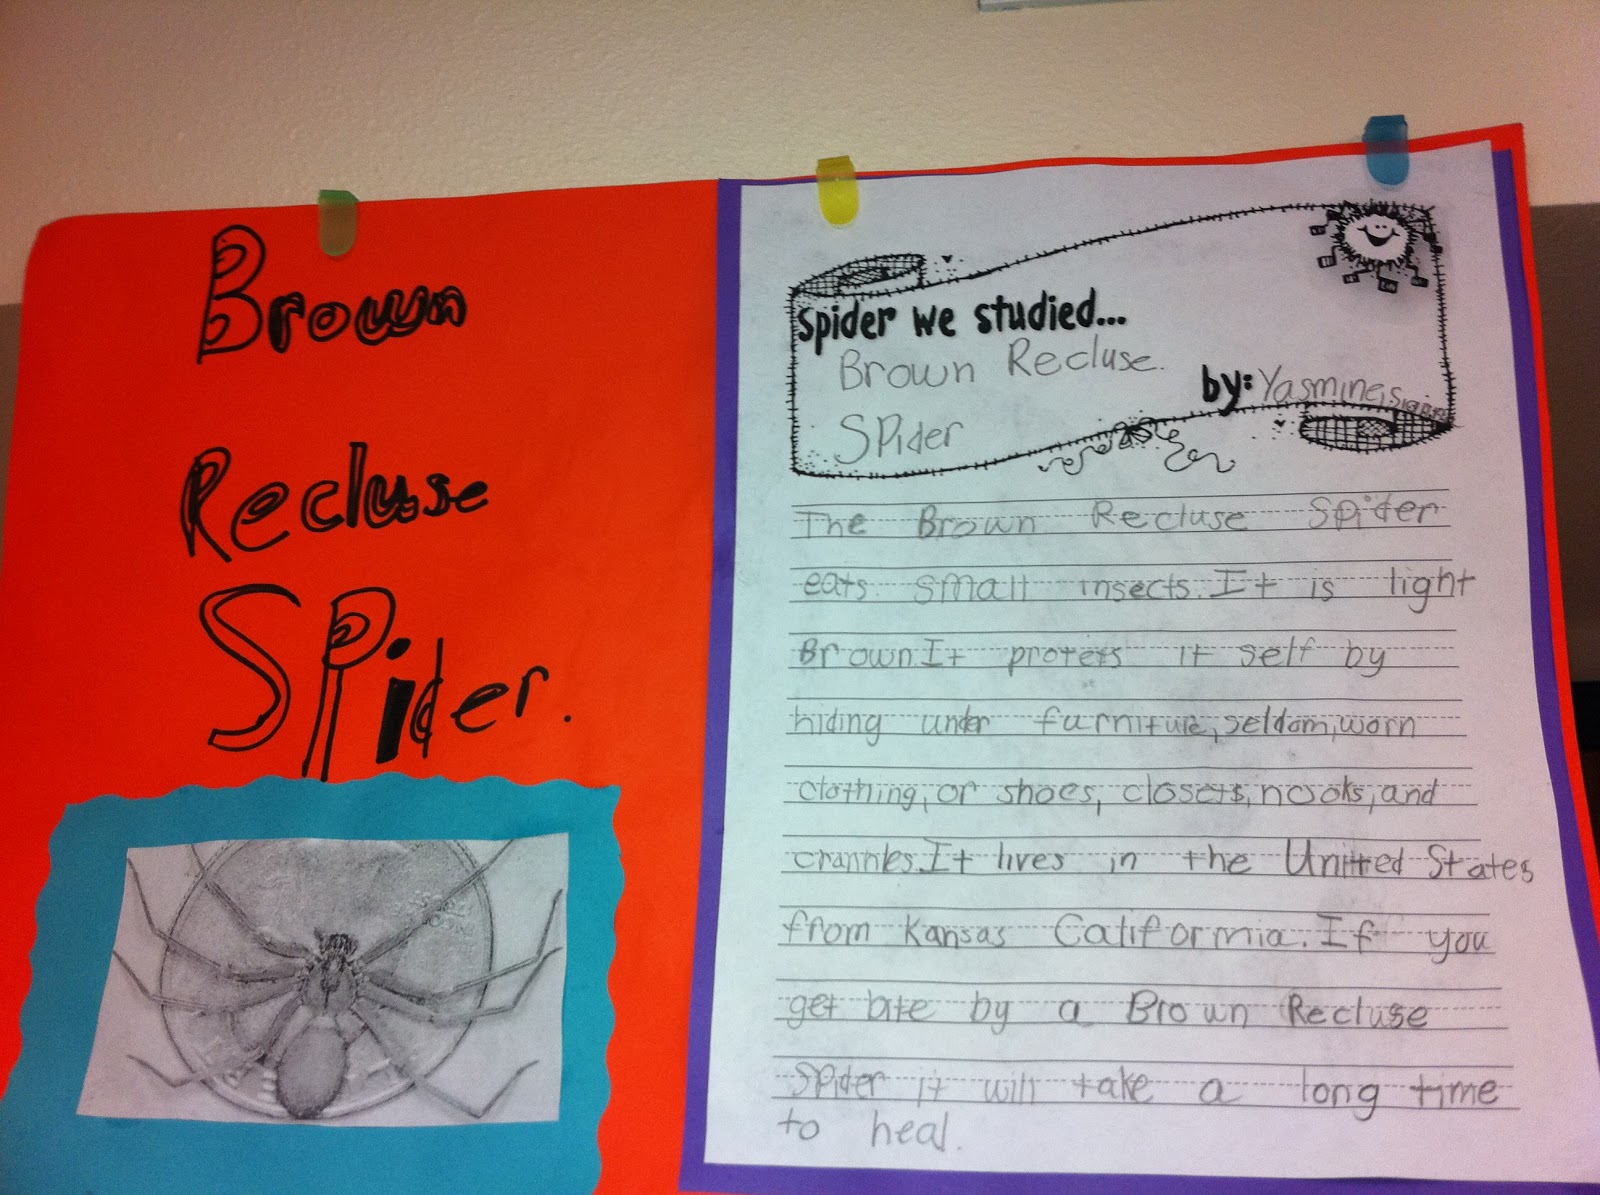 Brown
Recluse
SPider.
Spider we studied...
Brown Recluse.
SPider
by: Yasmine,
The Brown Recluse Spider
eats small insects. It is light
Brown. It protets it self by
hiding under furniture, seldom, worn
clothing, or shoes, closets, nooks, and
crannies. It lives in the United States
from Kansas California. If you
get bite by a Brown Recluse
Spider it will take a long time
to heal.